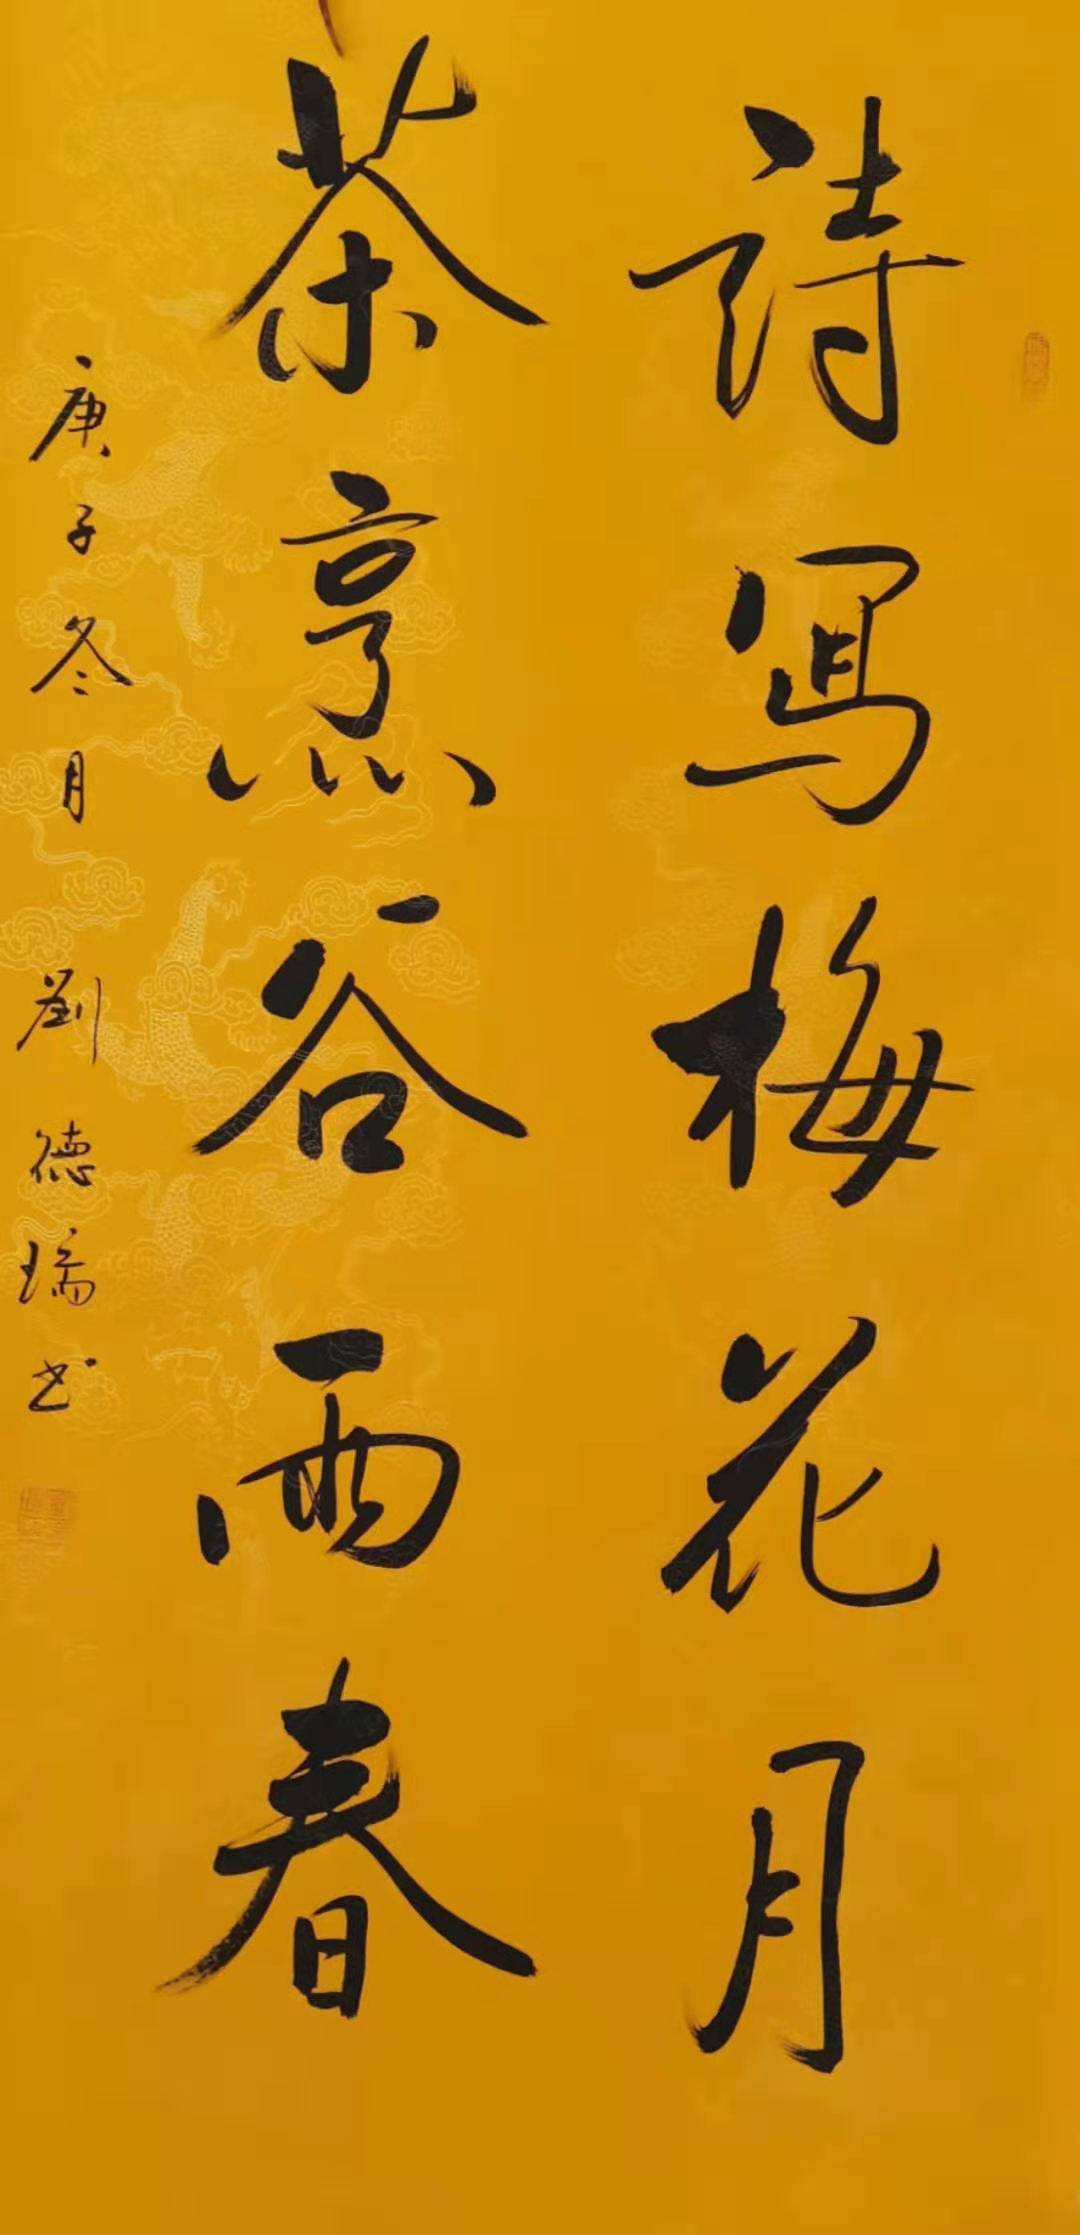 詩寫梅花月
茶烹谷雨春
庚子冬月 劉德瑞书